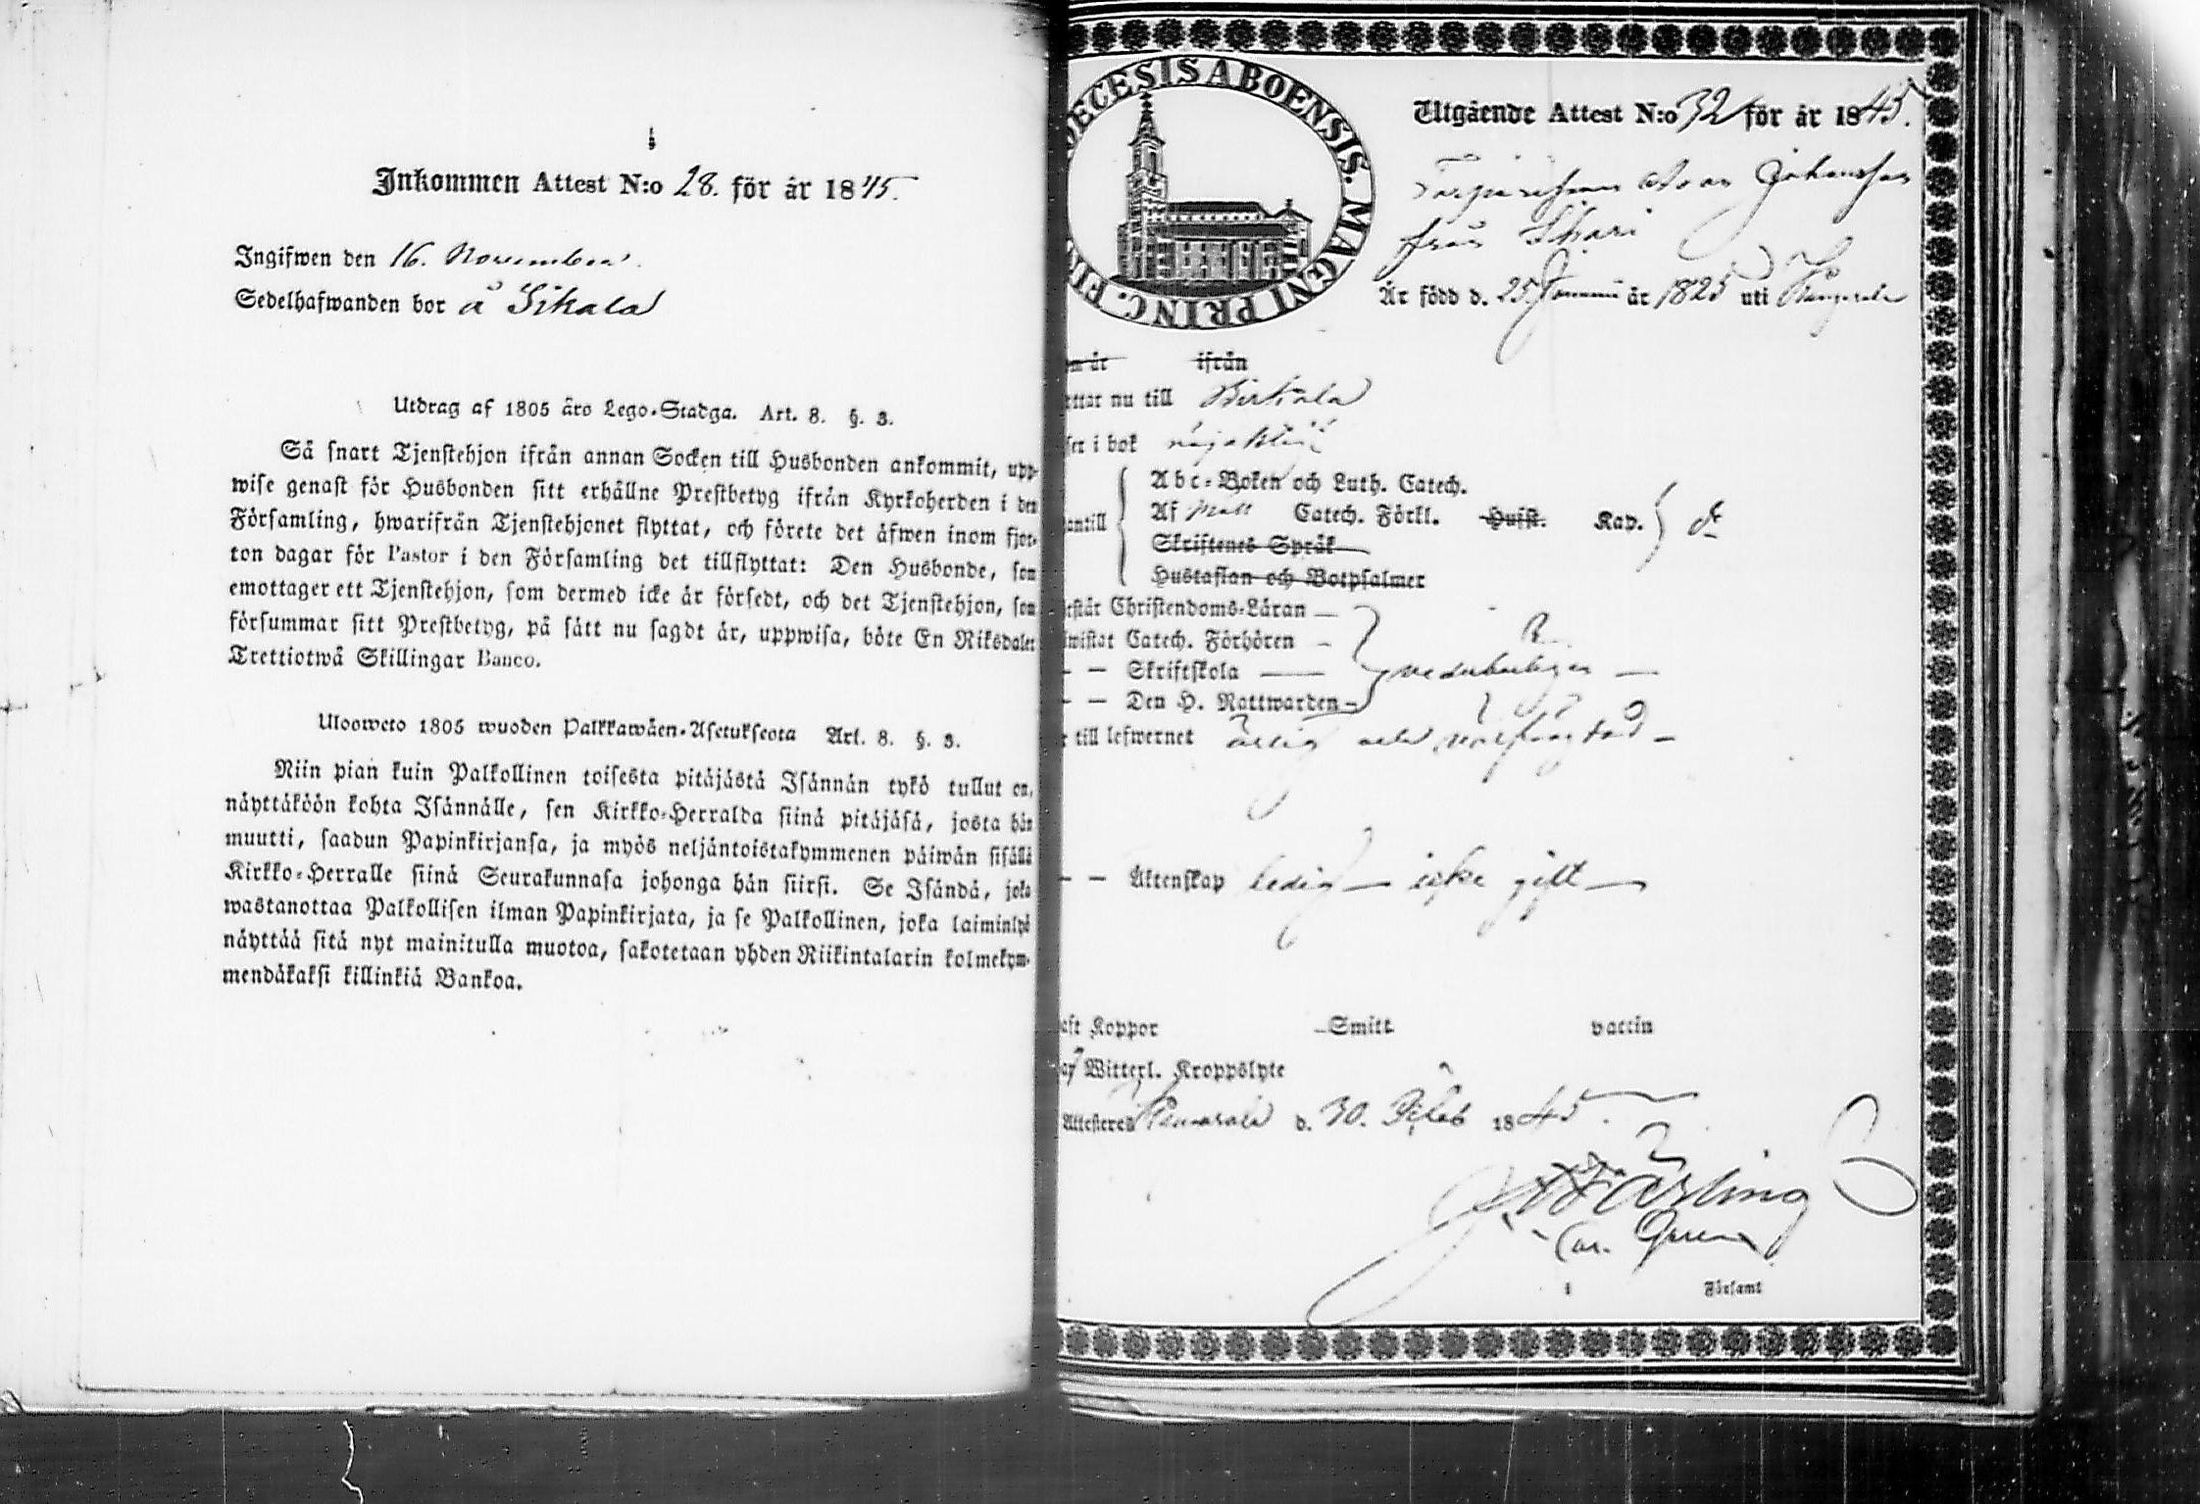 Inkommen Attest N:o 28. för år 1845.
Ingifwen den 16. November.
Sedelhafwanden bor å Sikala
Utdrag af 1805 åro Lego-Stadga. Art. 8. §. 3.
Så snart Tjenstehjon ifrån annan Socken till Husbonden ankommit, upp-
wise genast för Husbonden sitt erhållne Prestbetyg ifrån Kyrkoherden i den
Församling, hwarifrån Tjenstehjonet flyttat, och förete det äfwen inom fjor-
ton dagar för Pastor i den Församling det tillflyttat: Den Husbonde, som
emottager ett Tjenstehjon, som dermed icke är försedt, och det Tjenstehjon, som
försummar sitt Prestbetyg, på sätt nu sagdt är, uppwisa, böte En Riksdaler
Trettiotwå Skillingar Banco.
Ulosweto 1805 wuoden Palkkawäen-Asetuksesta Art. 8. §. 3.
Niin pian kuin Palkollinen toisesta pitäjästä Isännän tykö tullut on,
näyttäköön kohta Isännälle, sen Kirkko-Herralda siinä pitäjäsä, josta hän
muutti, saadun Papinkirjansa, ja myös neljäntoistakymmenen päiwän sisällä
Kirkko-Herralle siinä Seurakunnasa johonga hän siirsi. Se Isändä, joka
wastanottaa Palkollisen ilman Papinkirjata, ja se Palkollinen, joka laiminlyö
näyttää sitä nyt mainitulla muotoa, sakotetaan yhden Riikintalarin kolmekym-
mendäkaksi killinkiä Bankoa.
ECESIS ABOENSIS. MAGNI PRINC. FI
Utgående Attest N:o 32 för år 1845.
Johansson
från
Är född d. 25 år 1825 uti Kangasala
år ifrån
nu till Birkala
i bok
Abc-Boken och Luth. Catech.
Af Catech. Förkl. Hufst. Kap.
Skriftenes Språk
Hustaflan och Botpsalmer
Christendoms-Läran
Catech. Förhören
— — Skriftskola
— — Den H. Nattwarden
till lefwernet ärlig och
— — Äktenskap ledig — icke gift —
Koppor Smitt vaccin
Witterl. Kroppslyte
Attesterer d. 30. 1845.
i Församl